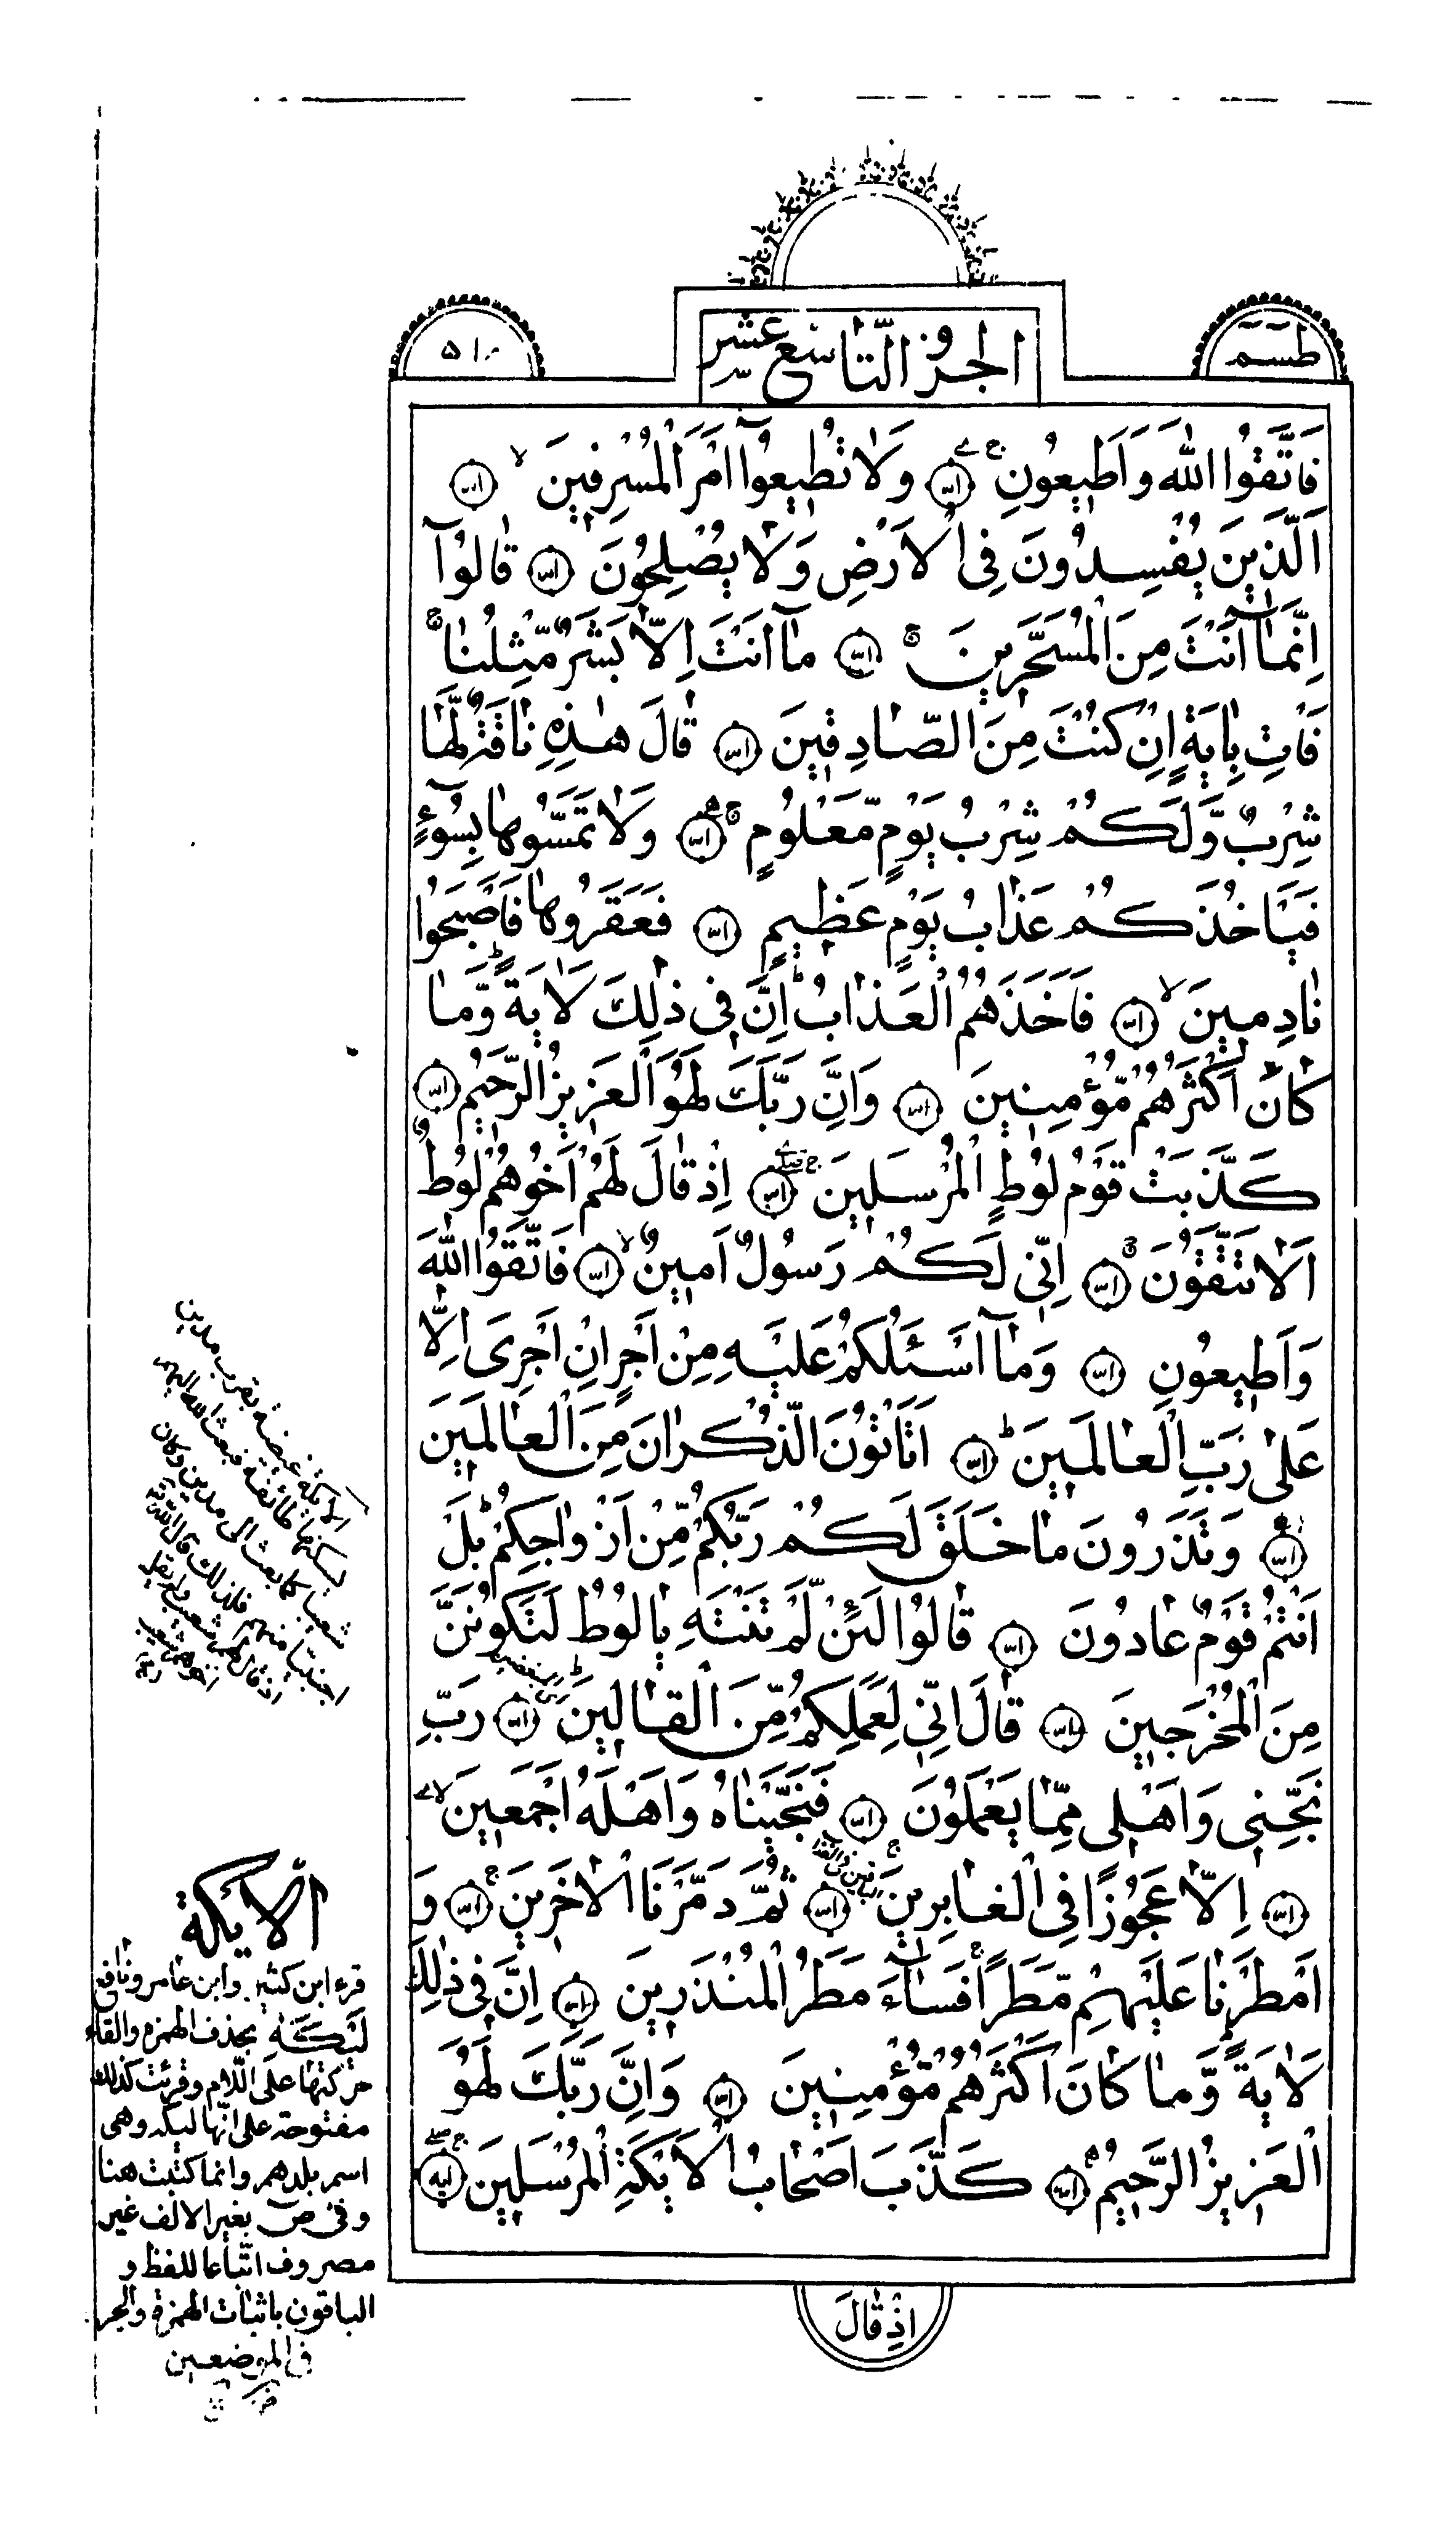 طسم
الجزؤ التاسع عشر
۵۱۰
فَاتَّقُوا اللهَ وَاَطٖيعُونِ وَلٰا تُطٖيعُوٓا اَمْرَ الْمُسْرِفٖينَ
اَلَّذٖينَ يُفْسِدُونَ فِى الْاَرْضِ وَلٰا يُصْلِحُونَ قٰالُوٓا
اِنَّمٰٓا اَنْتَ مِنَ الْمُسَحَّرٖينَ مٰٓا اَنْتَ اِلّٰا بَشَرٌ مِّثْلُنٰا
فَاْتِ بِاٰيَةٍ اِنْ كُنْتَ مِنَ الصّٰادِقٖينَ قٰالَ هٰذِهٖ نٰاقَةٌ لَّهٰا
شِرْبٌ وَّلَكُمْ شِرْبُ يَوْمٍ مَّعْلُومٍ وَلٰا تَمَسُّوهٰا بِسُوٓءٍ
فَيَاْخُذَكُمْ عَذٰابُ يَوْمٍ عَظٖيمٍ فَعَقَرُوهٰا فَاَصْبَحُوا
نٰادِمٖينَ فَاَخَذَهُمُ الْعَذٰابُ اِنَّ فٖى ذٰلِكَ لَاٰيَةً وَّمٰا
كٰانَ اَكْثَرُهُمْ مُّؤْمِنٖينَ وَاِنَّ رَبَّكَ لَهُوَ الْعَزٖيزُ الرَّحٖيمُ
كَذَّبَتْ قَوْمُ لُوطٍ الْمُرْسَلٖينَ اِذْ قٰالَ لَهُمْ اَخُوهُمْ لُوطٌ
اَلٰا تَتَّقُونَ اِنّٖى لَكُمْ رَسُولٌ اَمٖينٌ فَاتَّقُوا اللهَ
وَاَطٖيعُونِ وَمٰٓا اَسْـَٔلُكُمْ عَلَيْهِ مِنْ اَجْرٍ اِنْ اَجْرِىَ اِلّٰا
عَلٰى رَبِّ الْعٰالَمٖينَ اَتَاْتُونَ الذُّكْرٰانَ مِنَ الْعٰالَمٖينَ
وَتَذَرُونَ مٰا خَلَقَ لَكُمْ رَبُّكُمْ مِّنْ اَزْوٰاجِكُمْ بَلْ
اَنْتُمْ قَوْمٌ عٰادُونَ قٰالُوا لَئِنْ لَّمْ تَنْتَهِ يٰا لُوطُ لَتَكُونَنَّ
مِنَ الْمُخْرَجٖينَ قٰالَ اِنّٖى لِعَمَلِكُمْ مِّنَ الْقٰالٖينَ رَبِّ
نَجِّنٖى وَاَهْلٖى مِمّٰا يَعْمَلُونَ فَنَجَّيْنٰاهُ وَاَهْلَهُٓ اَجْمَعٖينَ
اِلّٰا عَجُوزًا فِى الْغٰابِرٖينَ ثُمَّ دَمَّرْنَا الْاٰخَرٖينَ وَ
اَمْطَرْنٰا عَلَيْهِمْ مَّطَرًا فَسٰٓاءَ مَطَرُ الْمُنْذَرٖينَ اِنَّ فٖى ذٰلِكَ
لَاٰيَةً وَّمٰا كٰانَ اَكْثَرُهُمْ مُّؤْمِنٖينَ وَاِنَّ رَبَّكَ لَهُوَ
الْعَزٖيزُ الرَّحٖيمُ كَذَّبَ اَصْحٰابُ الْاَيْكَةِ الْمُرْسَلٖينَ
اِذْ قٰالَ
الايكة غيضة بقرب مدين
يسكنها طائفة فبعث الله اليهم
شعيبا كما بعث الى مدين وكان
اجنبيّا منهم فلذلك قال
اذ قال لهم شعيب ولم يقل
اخوهم شعيب
الأيكة
قرء ابن كثير وابن عامر ونافع
لَيْكَةَ بحذف الهمزه والقاء
حركتها على اللّام وقرئت كذلك
مفتوحة على انّها ليكه وهى
اسم بلدهم وانما كتبت هنا
وفى صٓ بغير الالف غير
مصروف اتّباعا للفظ و
الباقون باثبات الهمزة والجر
فى الموضعين